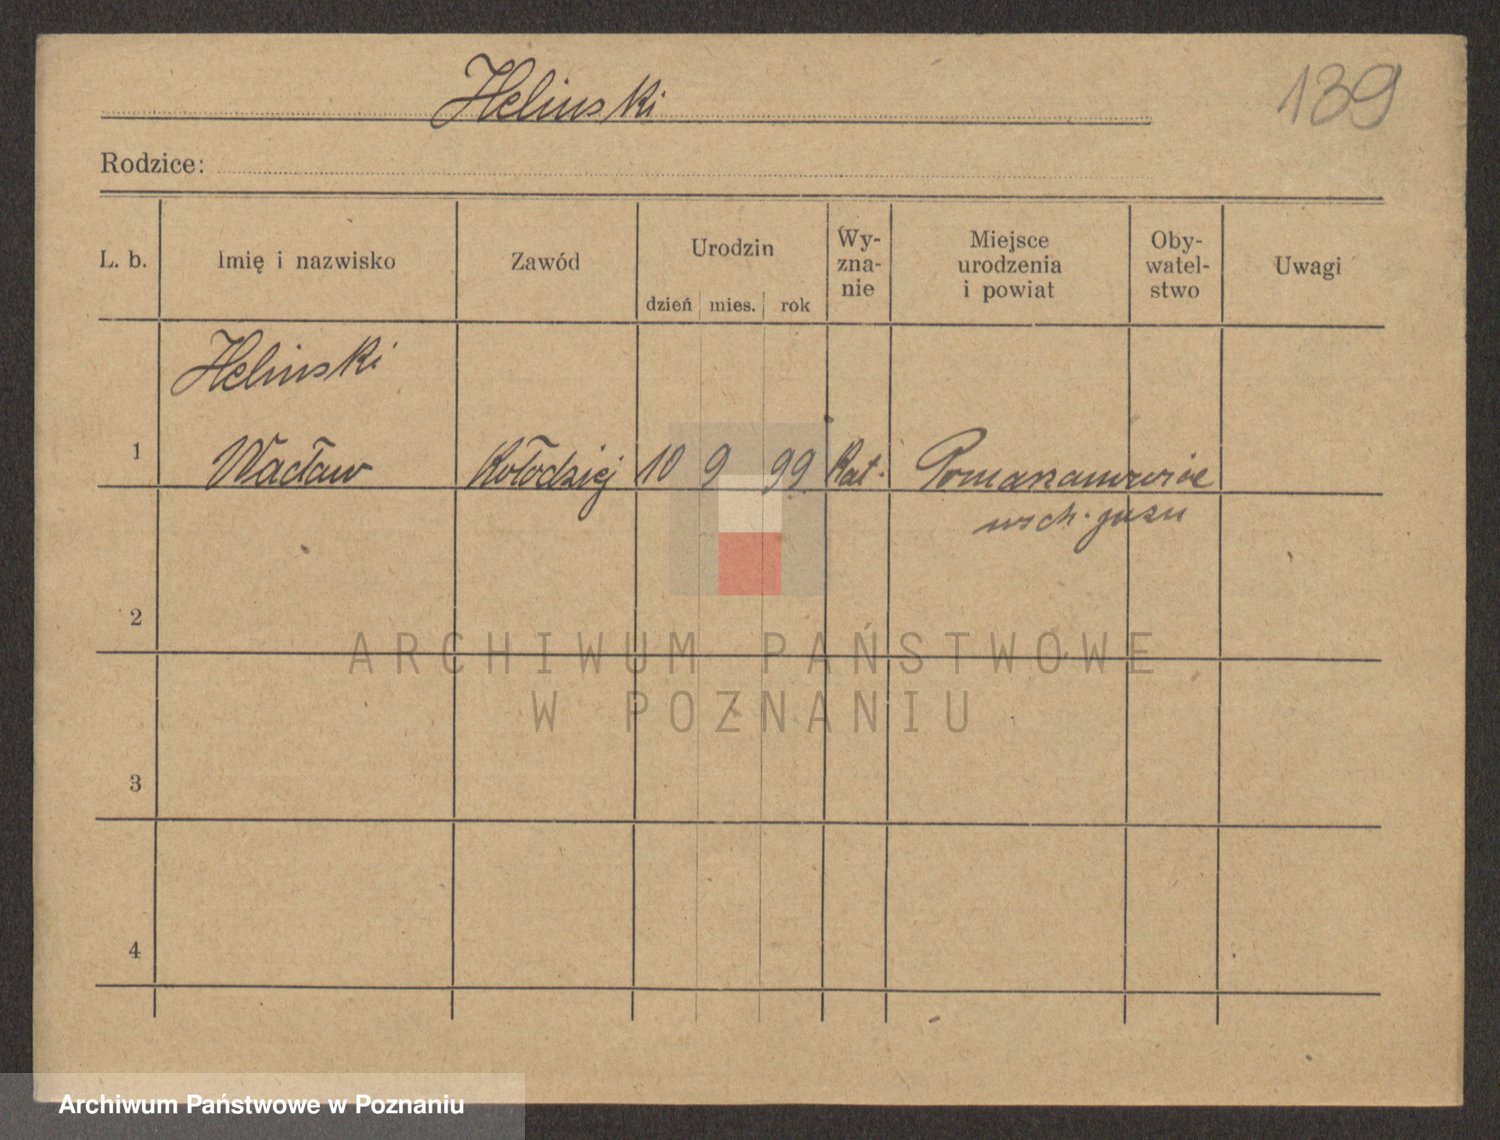 Helinski
139
Rodzice:
L. b. Imię i nazwisko Zawód Urodzin dzień mies. rok Wy-zna-nie Miejsce urodzenia i powiat Oby-watel-stwo Uwagi
Helinski
1 Wacław Kołodziej 10 9 99 Kat.
2
3
4
ARCHIWUM PAŃSTWOWE
W POZNANIU
Archiwum Państwowe w Poznaniu